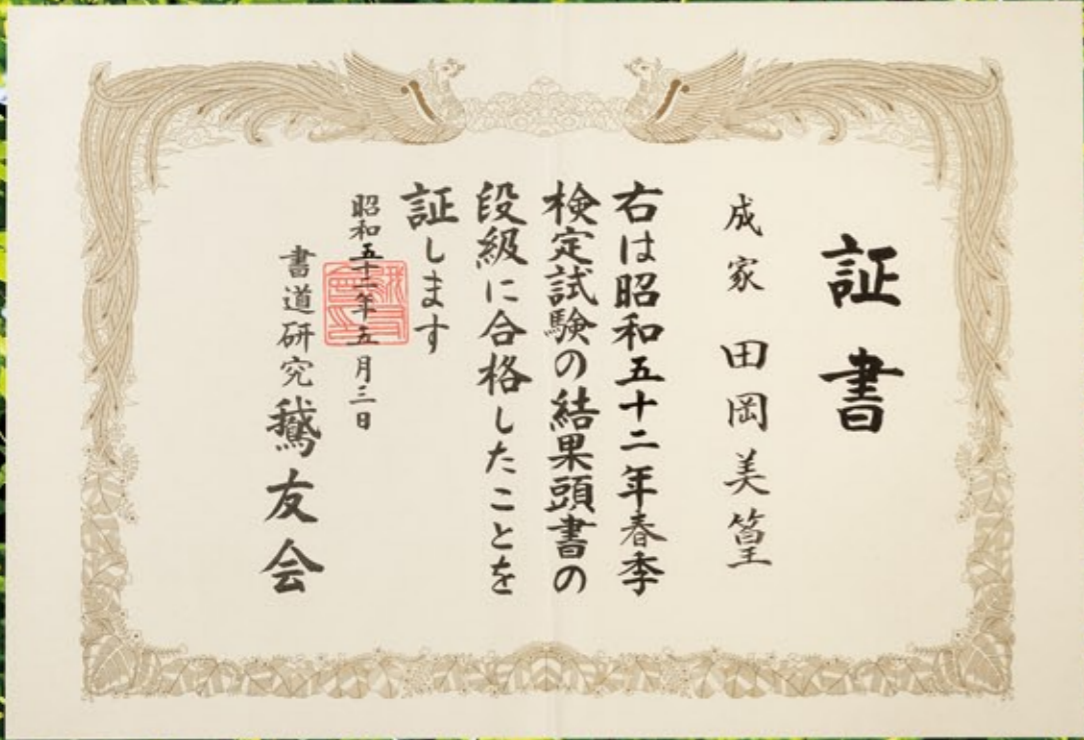 証書
成家 田岡美篁
右は昭和五十二年春季
検定試験の結果頭書の
段級に合格したことを
証します
昭和五十二年五月三日
書道研究鵞友会